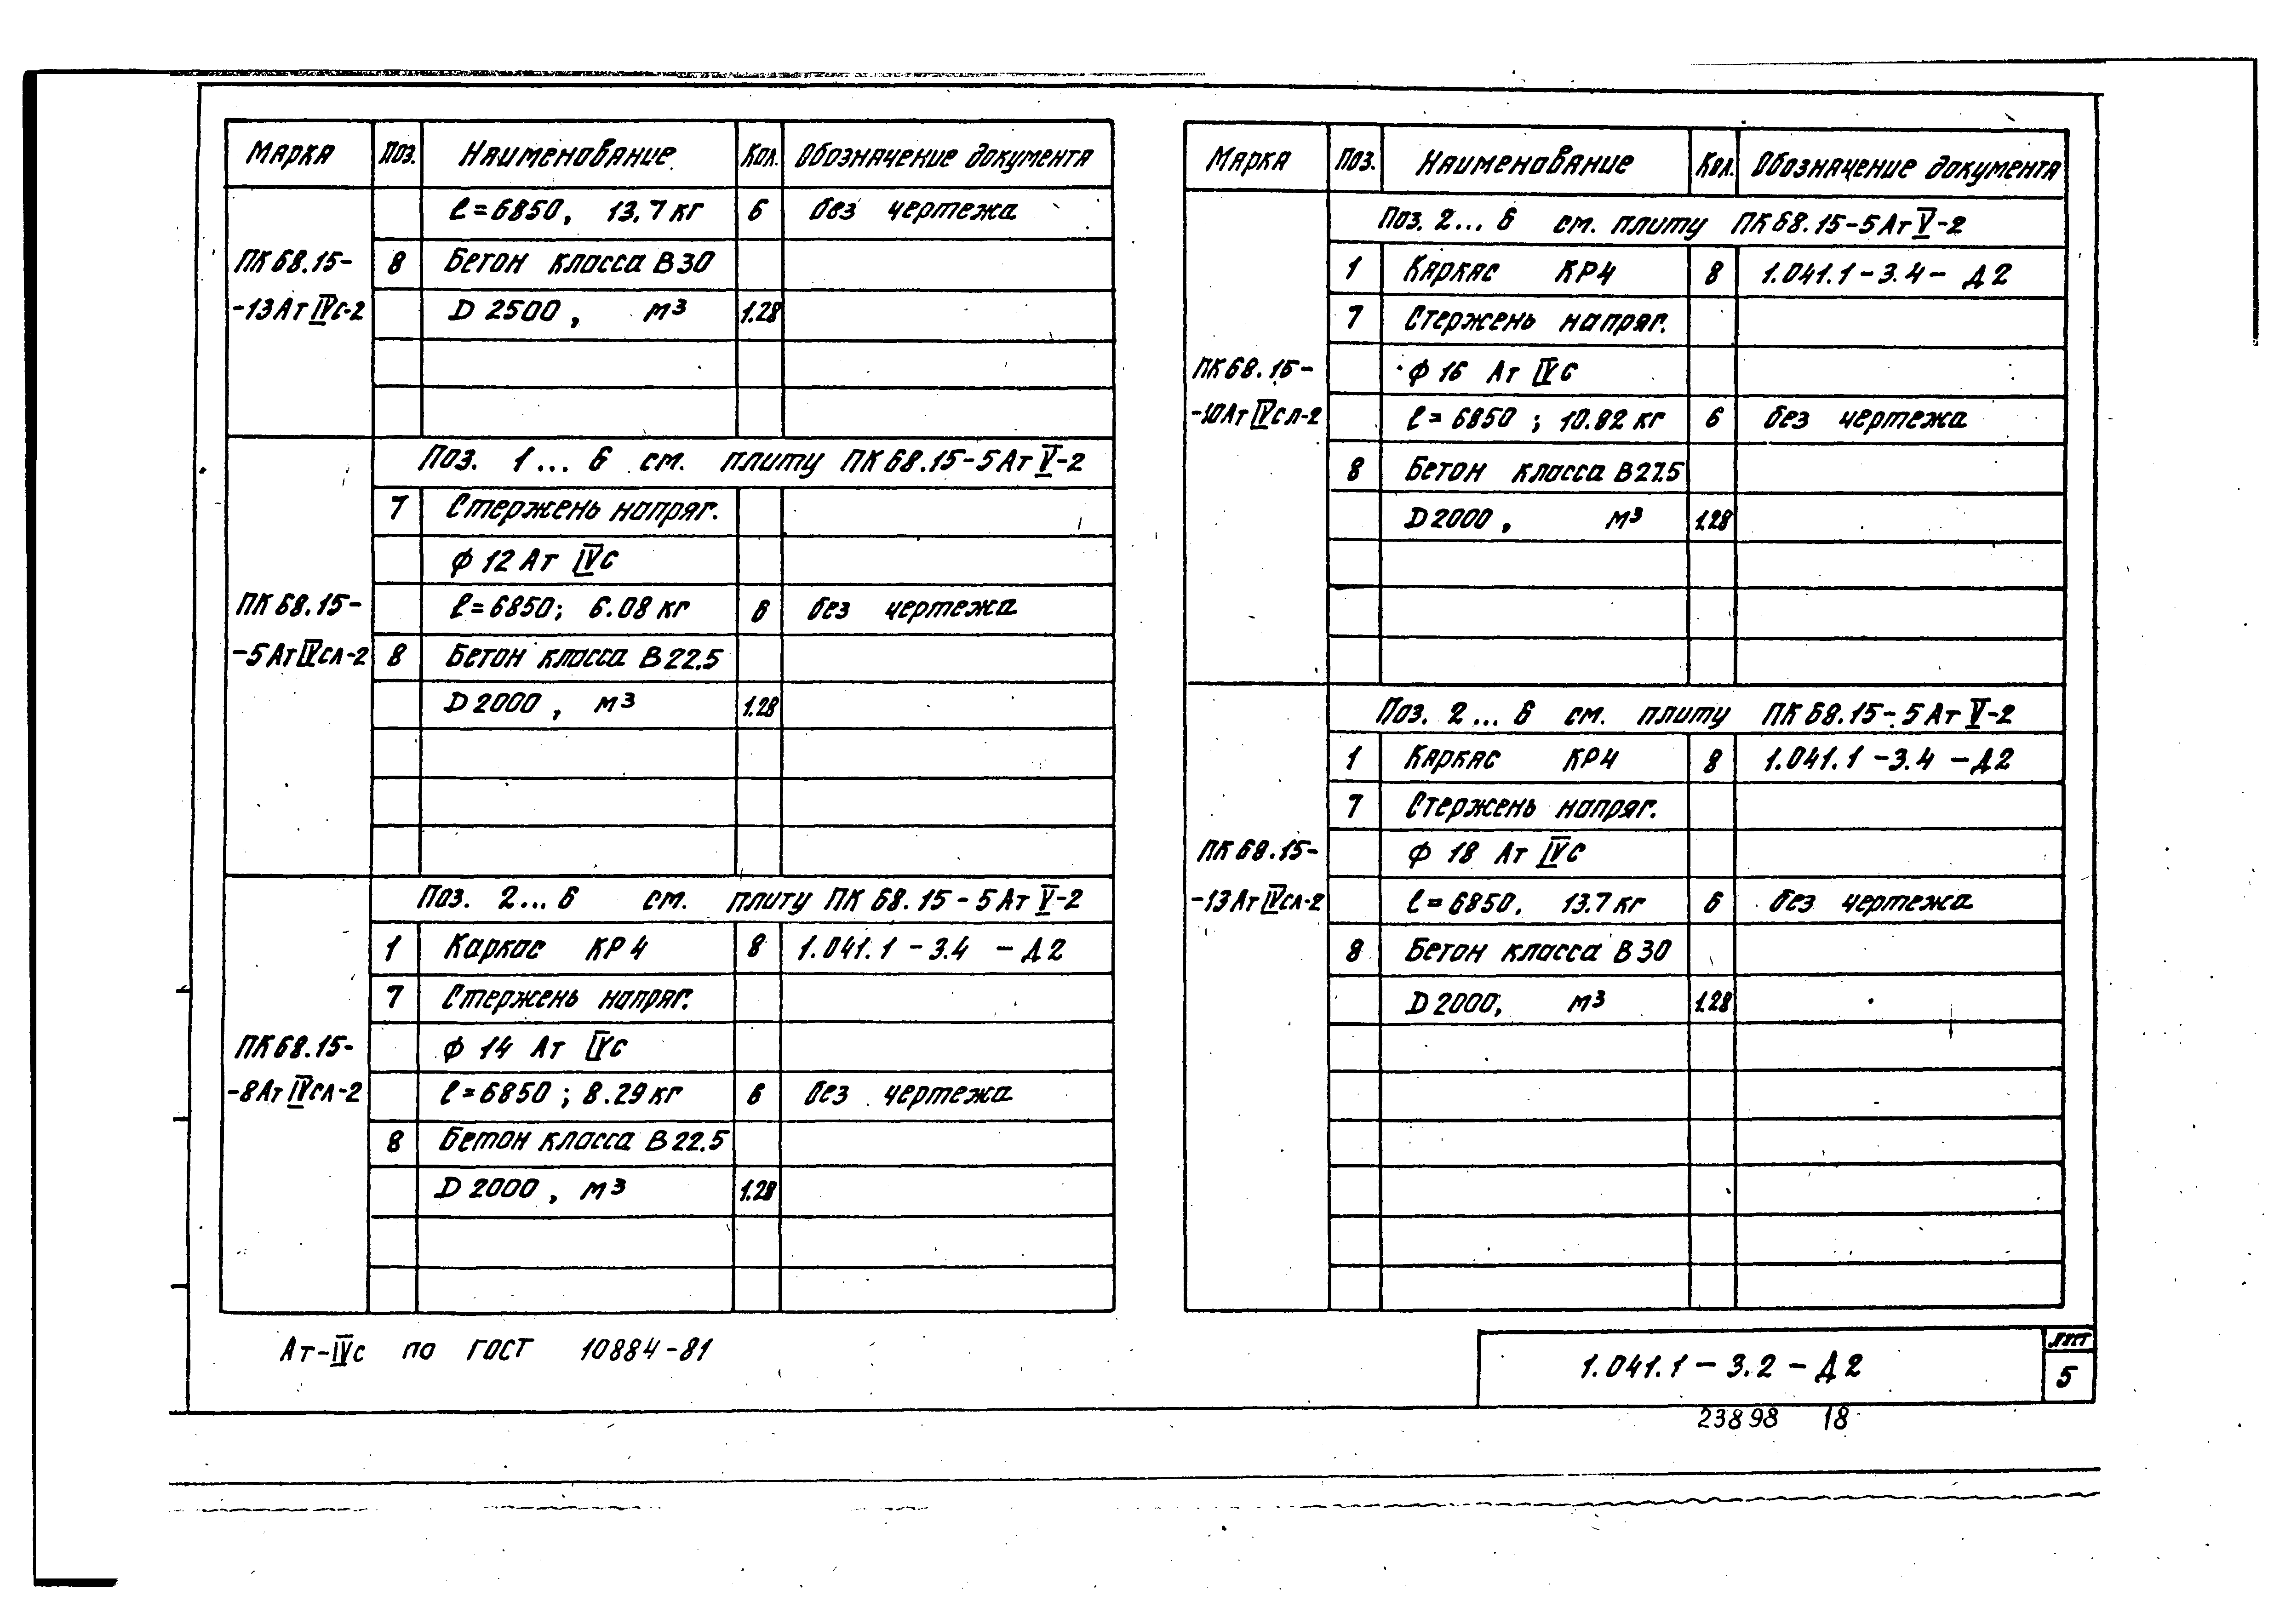 Марка Поз. Наименование Кол. Обозначение документа
ℓ=6850, 13.7 кг 6 без чертежа
ПК68.15- 8 Бетон класса В30
-13Ат IVс-2 D 2500, м³ 1.28
Поз. 1...6 см. плиту ПК 68.15-5Ат V-2
7 Стержень напряг.
ф 12 Ат IVс
ПК 68.15- ℓ=6850; 6.08 кг 6 без чертежа
-5Ат IVсл-2 8 Бетон класса В22.5
D 2000, м³ 1.28
Поз. 2...6 см. плиту ПК 68.15-5Ат V-2
1 Каркас КР4 8 1.041.1-3.4-Д2
7 Стержень напряг.
ПК68.15- ф 14 Ат IVс
-8Ат IVсл-2 ℓ=6850; 8.29 кг 6 без чертежа
8 Бетон класса В22.5
D 2000, м³ 1.28
Ат-IVс по ГОСТ 10884-81
Марка Поз. Наименование Кол. Обозначение документа
Поз. 2...6 см. плиту ПК68.15-5Ат V-2
1 Каркас КР4 8 1.041.1-3.4-Д2
7 Стержень напряг.
ПК68.15- ф 16 Ат IVс
-10Ат IVсл-2 ℓ=6850; 10.82 кг 6 без чертежа
8 Бетон класса В27.5
D 2000, м³ 1.28
Поз. 2...6 см. плиту ПК68.15-5Ат V-2
1 Каркас КР4 8 1.041.1-3.4-Д2
7 Стержень напряг.
ПК68.15- ф 18 Ат IVс
-13Ат IVсл-2 ℓ=6850, 13.7 кг 6 без чертежа
8 Бетон класса В30
D 2000, м³ 1.28
1.041.1-3.2-Д2
лист
5
23898 18